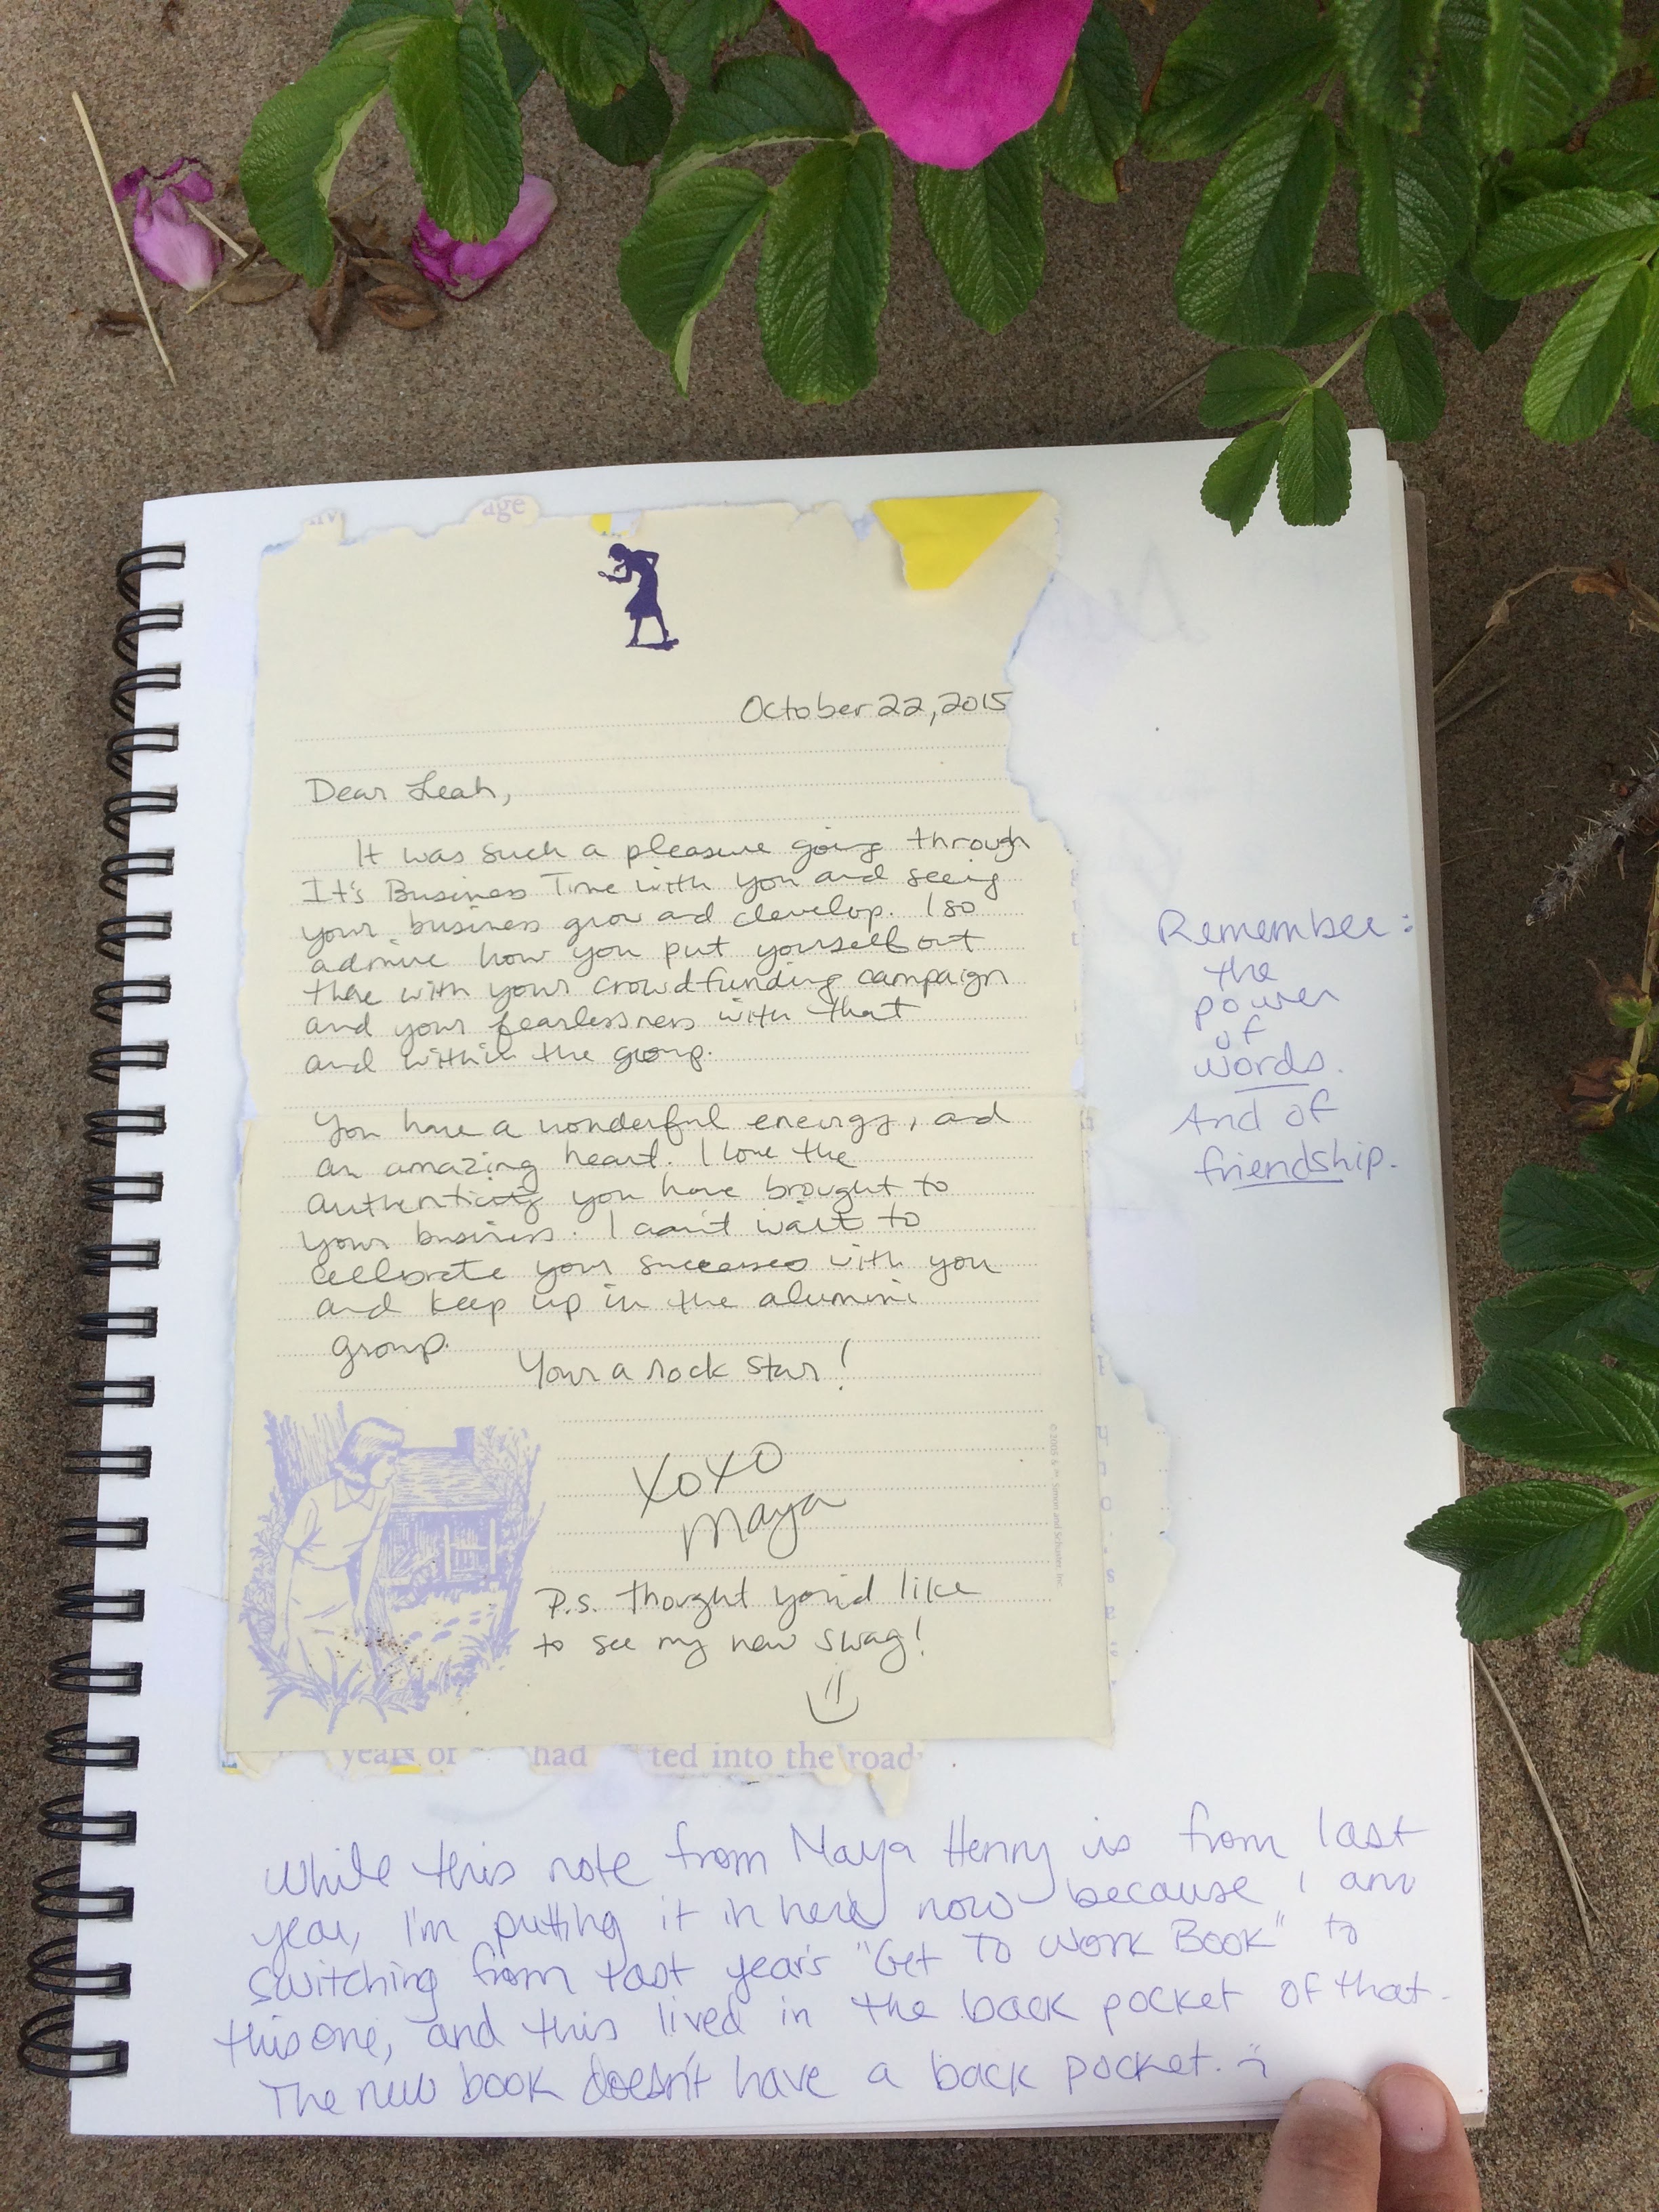 age
October 22, 2015
Dear Leah,
It was such a pleasure going through
It's Business Time with you and seeing
your business grow and develop. I so
admire how you put yourself out
there with your crowdfunding campaign
and your fearlessness with that
and within the group.
You have a wonderful energy, and
an amazing heart. I love the
authenticity you have brought to
your business. I can't wait to
celebrate your successes with you
and keep up in the alumini
group.
Your a rock star!
XOXO
Maya
P.S. thought you'd like
to see my new swag!
© 2005 & ™ Simon and Schuster, Inc.
years of had ted into the road
Remember:
the
power
of
words.
And of
friendship.
While this note from Maya Henry is from last
year, I'm putting it in here now because I am
switching from last year's "Get To Work Book" to
this one, and this lived in the back pocket of that.
The new book doesn't have a back pocket. :(